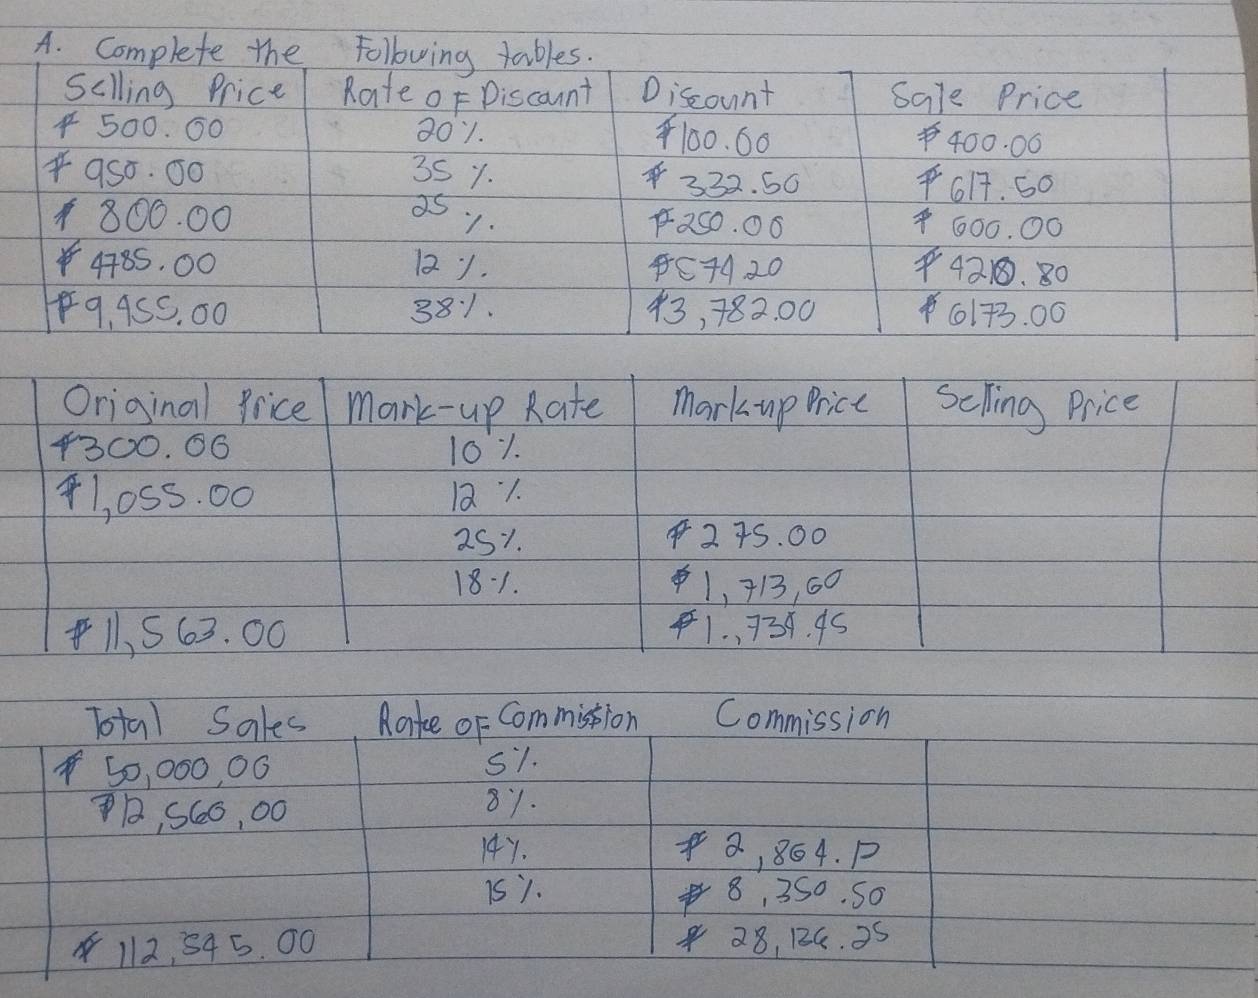 A. Complete the Following tables.
Selling Price Rate of Discount Discount Sale Price
₱ 500.00 20% ₱100.00 ₱400.00
₱ 950.00 35% ₱ 332.50 ₱617.50
₱ 800.00 25% ₱250.00 ₱ 600.00
₱ 4785.00 12% ₱574.20 ₱ 4210.80
₱9,955.00 38% ₱3,782.00 ₱6173.00
Original Price Mark-up Rate Mark-up Price Selling Price
₱300.00 10%
₱1,055.00 12%
25% ₱275.00
18% ₱1,713,60
₱11,563.00 ₱1.,734.45
Total Sales Rate of Commission Commission
₱ 50,000,00 5%
₱12,560,00 8%
14% ₱ 2,864.
15% ₱ 8,350.50
₱ 112,545.00 ₱ 28,136.25